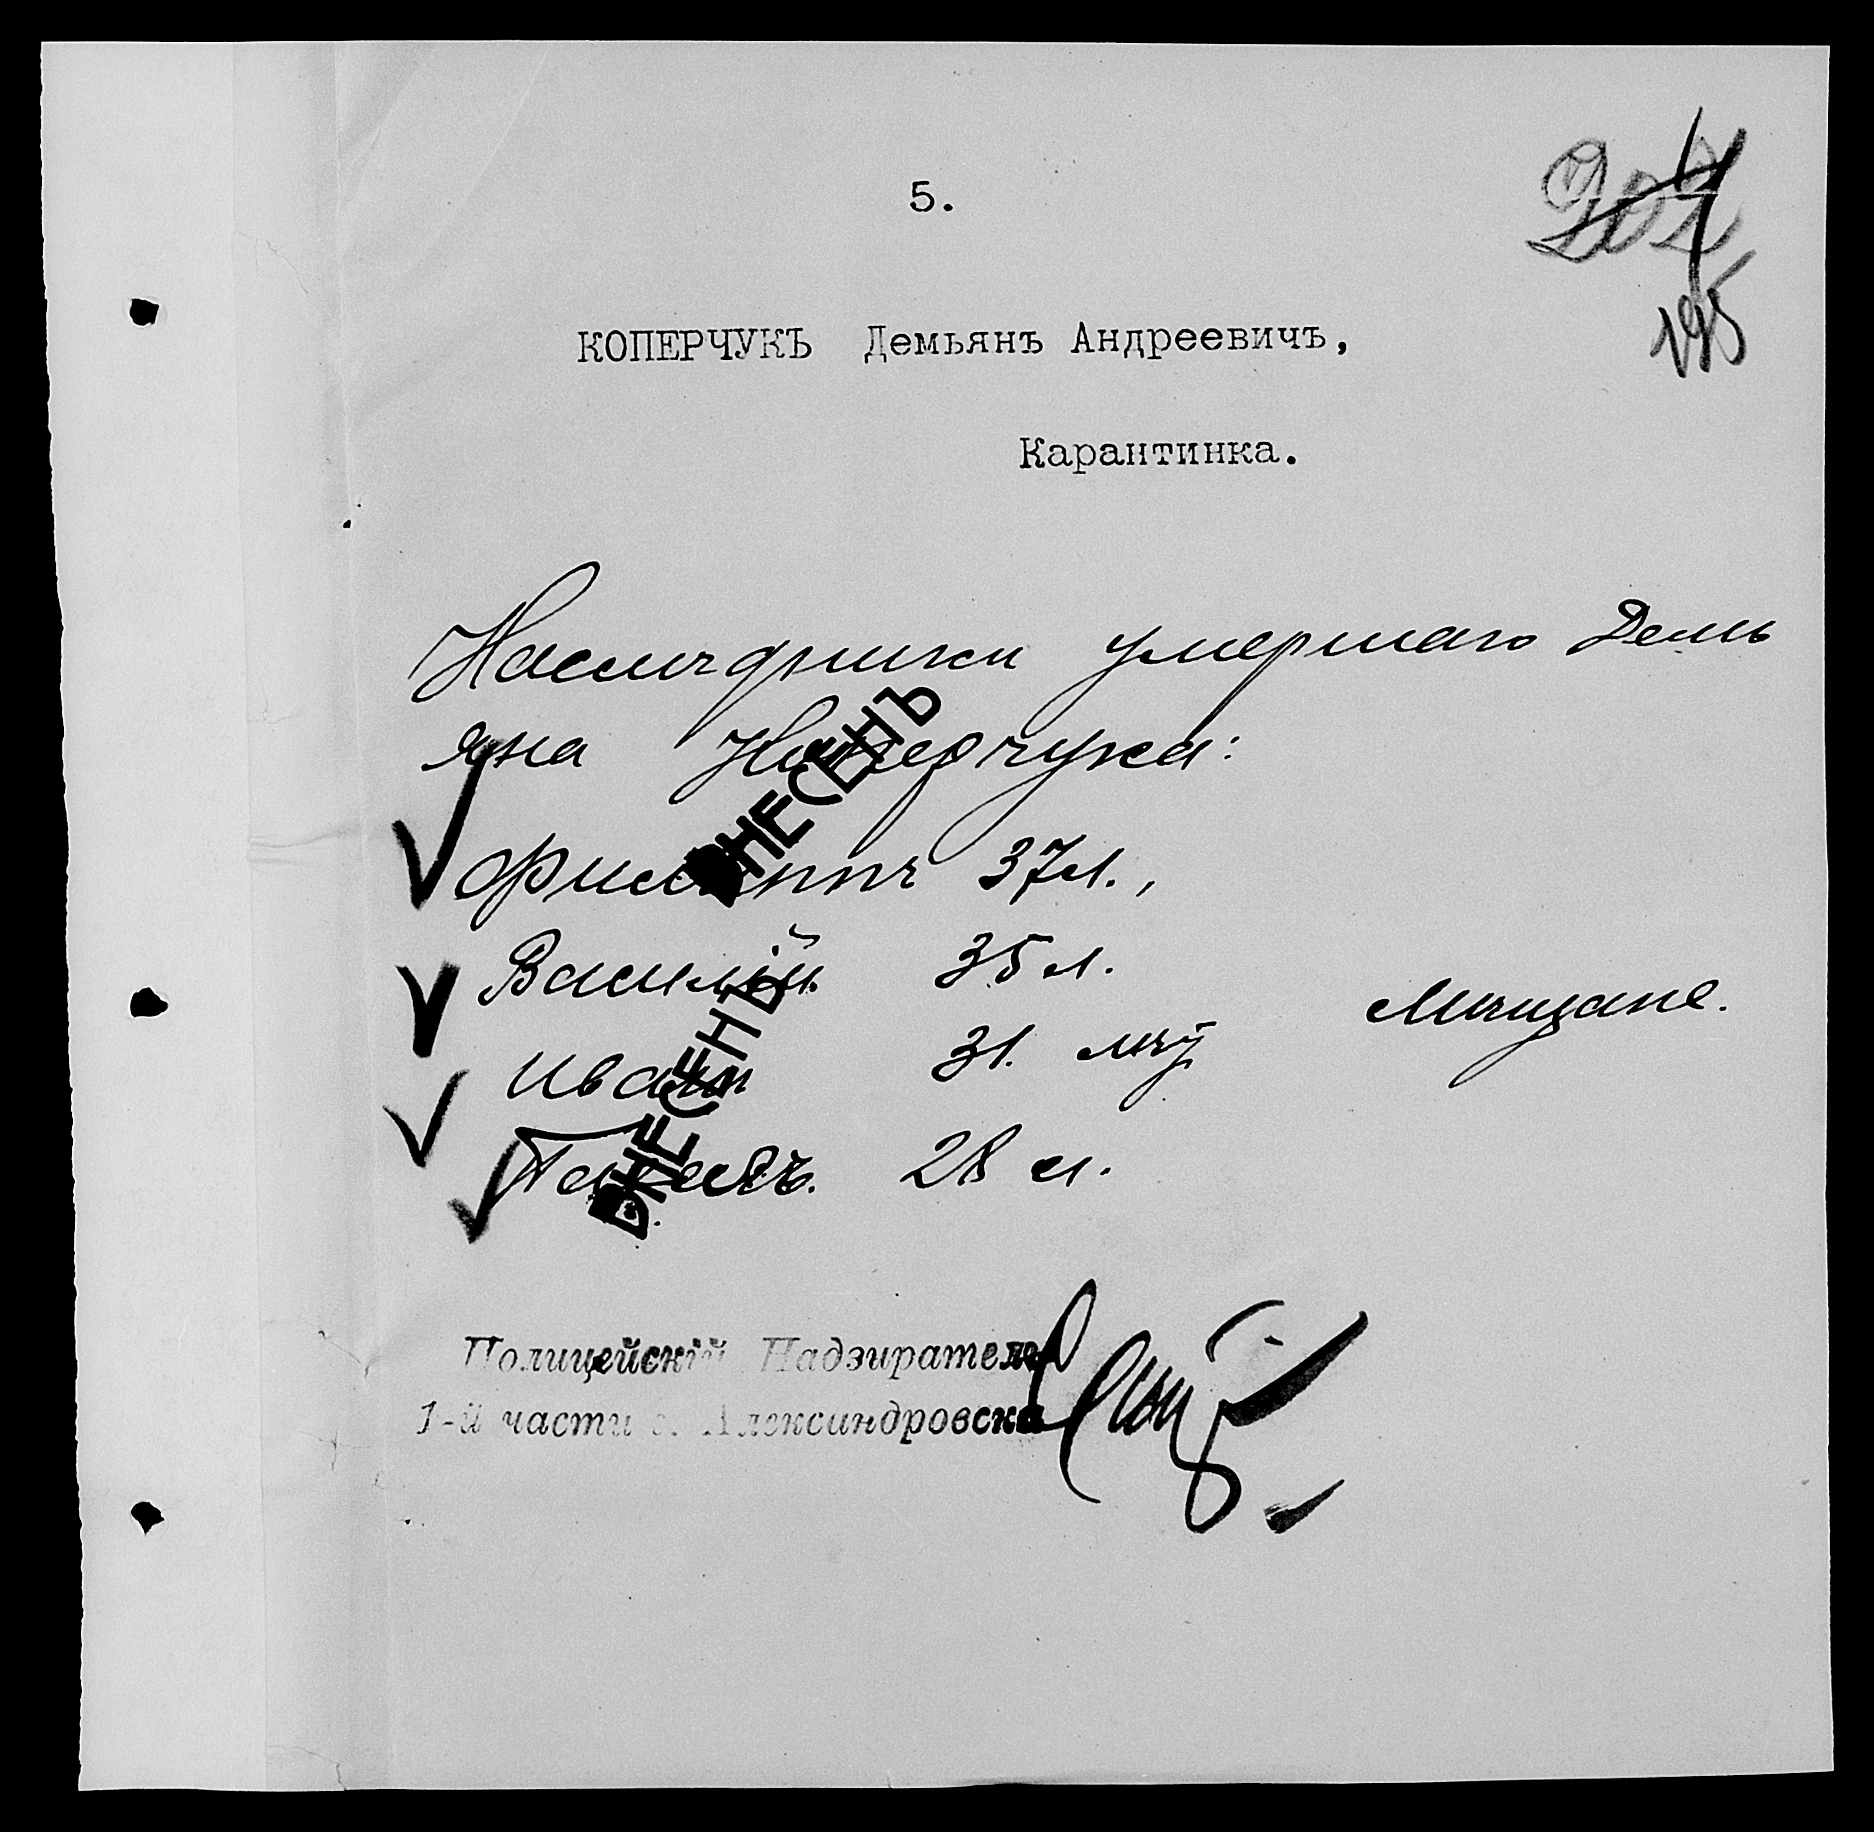 5.
202
195
КОПЕРЧУКЪ Демьянъ Андреевичъ,
Карантинка.
Наслѣдники умершаго Демь
яна Коперчука:
Филиппъ 37 л.,
Василій 35 л.
Мѣщане.
Иванъ 31. лѣт
Павелъ. 28 л.
ВНЕСЕНЪ
ВНЕСЕНЪ
Полицейскій Надзиратель
1-й части г. Александровска